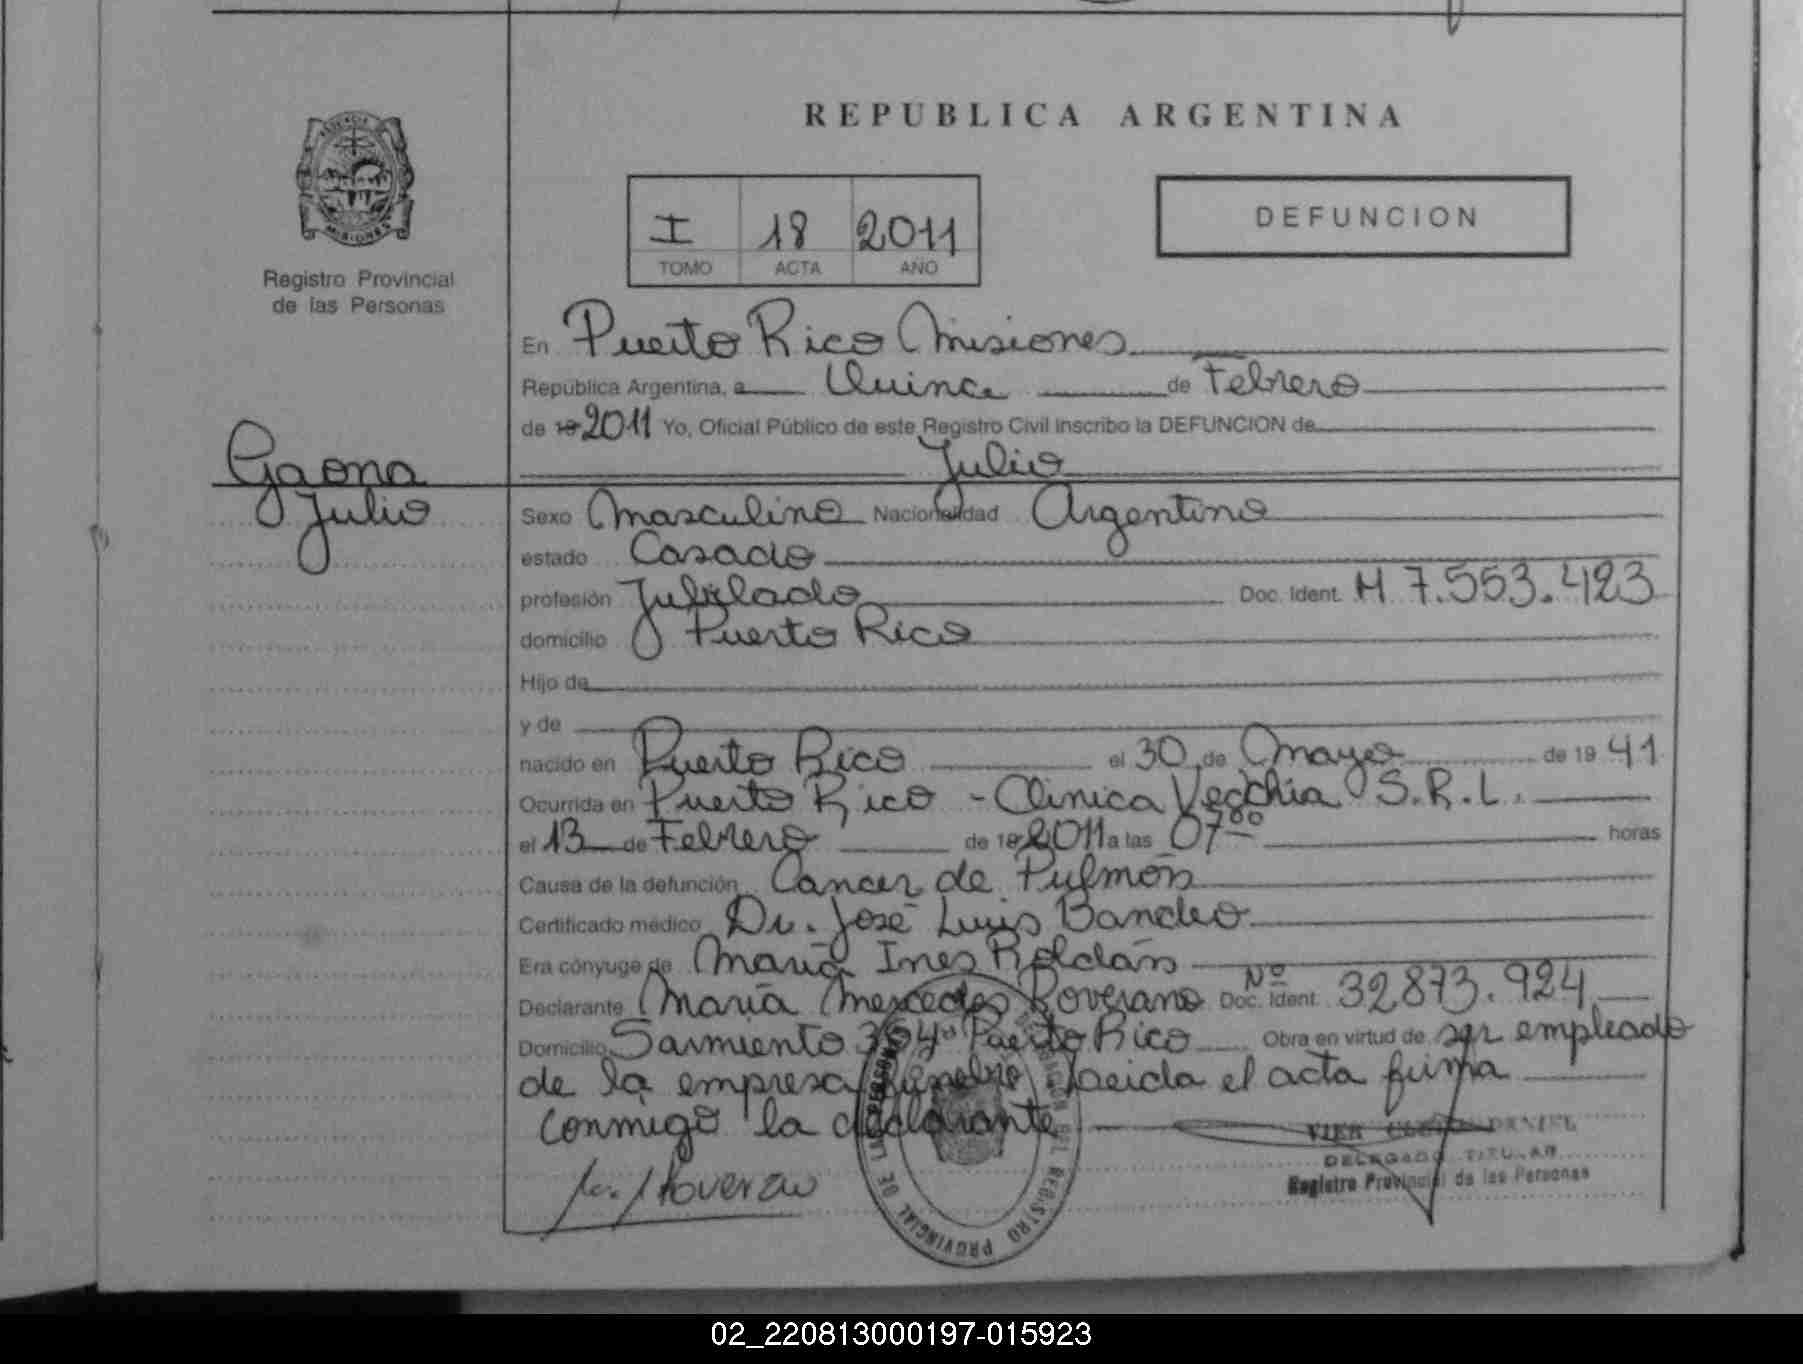 REPUBLICA ARGENTINA
PROVINCIA
MISIONES
Registro Provincial
de las Personas
I 18 2011
TOMO ACTA AÑO
DEFUNCION
En Puerto Rico Misiones
República Argentina, a Quince de Febrero
de 19 2011 Yo, Oficial Público de este Registro Civil inscribo la DEFUNCION de
Gaona
Julio
Julio
Sexo Masculino Nacionalidad Argentino
estado Casado
profesión Jubilado Doc. Ident. M 7.553.423
domicilio Puerto Rico
Hijo de
y de
nacido en Puerto Rico el 30 de Mayo de 19 41
Ocurrida en Puerto Rico - Clinica Vecchia S.R.L.
el 13 de Febrero de 19 2011 a las 07 00 horas
Causa de la defunción Cancer de Pulmón
Certificado médico Dr. José Luis Bandeo
Era cónyuge de María Ines Roldán
Declarante María Mercedes Roverano Doc. Ident. Nº 32873.924
Domicilio Sarmiento 364 Puerto Rico Obra en virtud de ser empleado
de la empresa funebre Laeida el acta firma
conmigo la declarante
DANIEL
DELEGADO TITULAR
Registro Provincial de las Personas
REGISTRO PROVINCIAL DE LAS PERSONAS
02_220813000197-015923